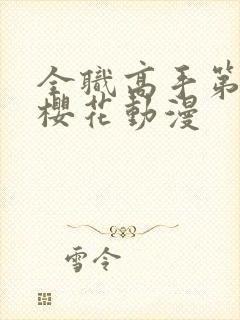 全職高手第
櫻花動漫
雪令